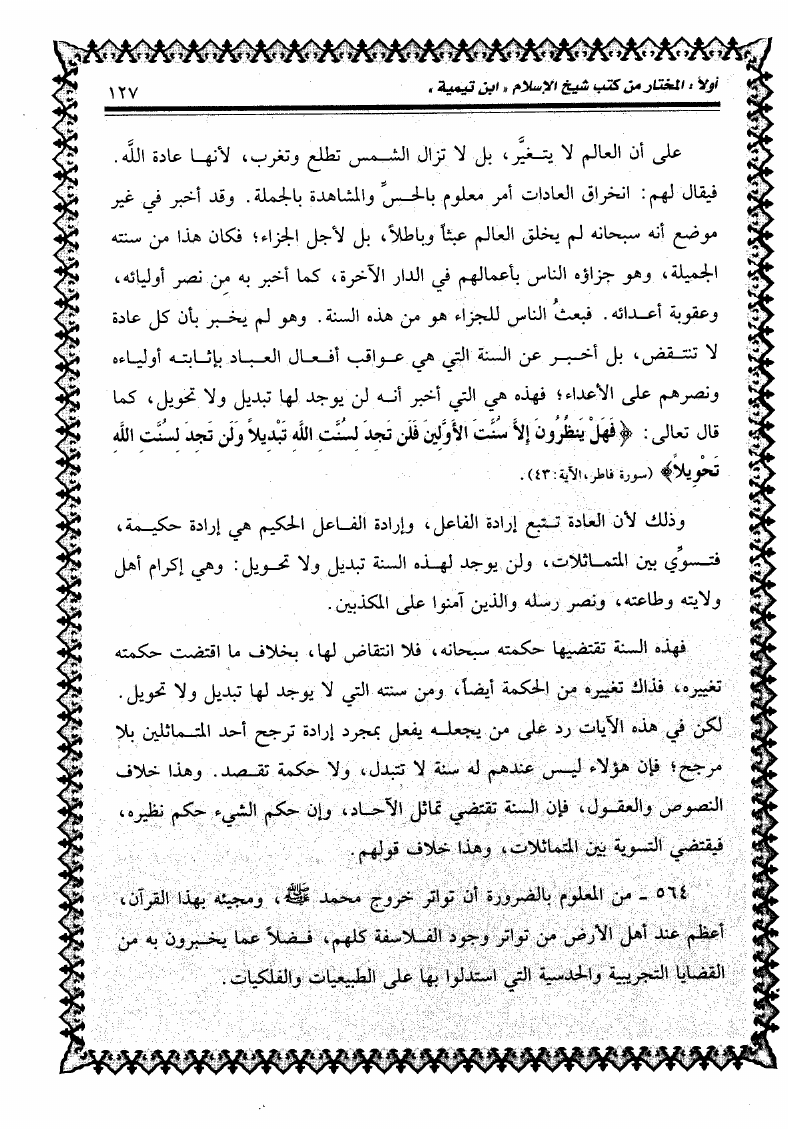 أولاً : المختار من كتب شيخ الإسلام « ابن تيمية »
١٢٧
على أن العالم لا يتـغيَّر، بل لا تزال الشـمس تطلع وتغرب، لأنهـا عادة اللَّه.
فيقال لهم: انخراق العادات أمر معلوم بالحـسِّ والمشاهدة بالجملة. وقد أخبر في غير
موضع أنه سبحانه لم يخلق العالم عبثاً وباطلاً، بل لأجل الجزاء؛ فكان هذا من سنته
الجميلة، وهو جزاؤه الناس بأعمالهم في الدار الآخرة، كما أخبر به مِن نصر أوليائه،
وعقوبة أعـدائه. فبعثُ الناس للجزاء هو من هذه السنة. وهو لم يخـبر بأن كل عادة
لا تنتـقض، بل أخـبـر عن السنة التي هي عـواقب أفـعـال العـبـاد بإثـابتـه أوليـاءه
ونصرهم على الأعداء؛ فهذه هي التي أخبر أنـه لن يوجد لها تبديل ولا تحويل، كما
قال تعالى: ﴿فَهَلْ يَنظُرُونَ إِلاَّ سُنَّتَ الأَوَّلِينَ فَلَن تَجِدَ لِسُنَّتِ اللَّهِ تَبْدِيلاً وَلَن تَجِدَ لِسُنَّتِ اللَّهِ
تَحْوِيلاً﴾ (سورة فاطر، الآية: ٤٣).
وذلك لأن العادة تـتبع إرادة الفاعل، وإرادة الفـاعل الحكيم هي إرادة حكيـمة،
فتـسوِّي بين المتمـاثلات، ولن يوجد لهـذه السنة تبديل ولا تحـويل: وهي إكرام أهل
ولايته وطاعته، ونصر رسله والذين آمنوا على المكذبين.
فهذه السنة تقتضيها حكمته سبحانه، فلا انتقاض لها، بخلاف ما اقتضت حكمته
تغييره، فذاك تغييره من الحكمة أيضاً، ومن سنته التي لا يوجد لها تبديل ولا تحويل.
لكن في هذه الآيات رد على من يجعلـه يفعل بمجرد إرادة ترجح أحد المتـماثلين بلا
مرجح؛ فإن هؤلاء ليـس عندهم له سنة لا تتبدل، ولا حكمة تقـصد. وهذا خلاف
النصوص والعقـول، فإن السنة تقتضي تماثل الآحـاد، وإن حكم الشيء حكم نظيره،
فيقتضي التسوية بين المتماثلات، وهذا خلاف قولهم.
٥٦٤ ـ من المعلوم بالضرورة أن تواتر خروج محمد ﷺ، ومجيئه بهذا القرآن،
أعظم عند أهل الأرض من تواتر وجود الفـلاسفة كلهم، فـضلاً عما يخـبرون به من
القضايا التجريبية والحدسية التي استدلوا بها على الطبيعيات والفلكيات.